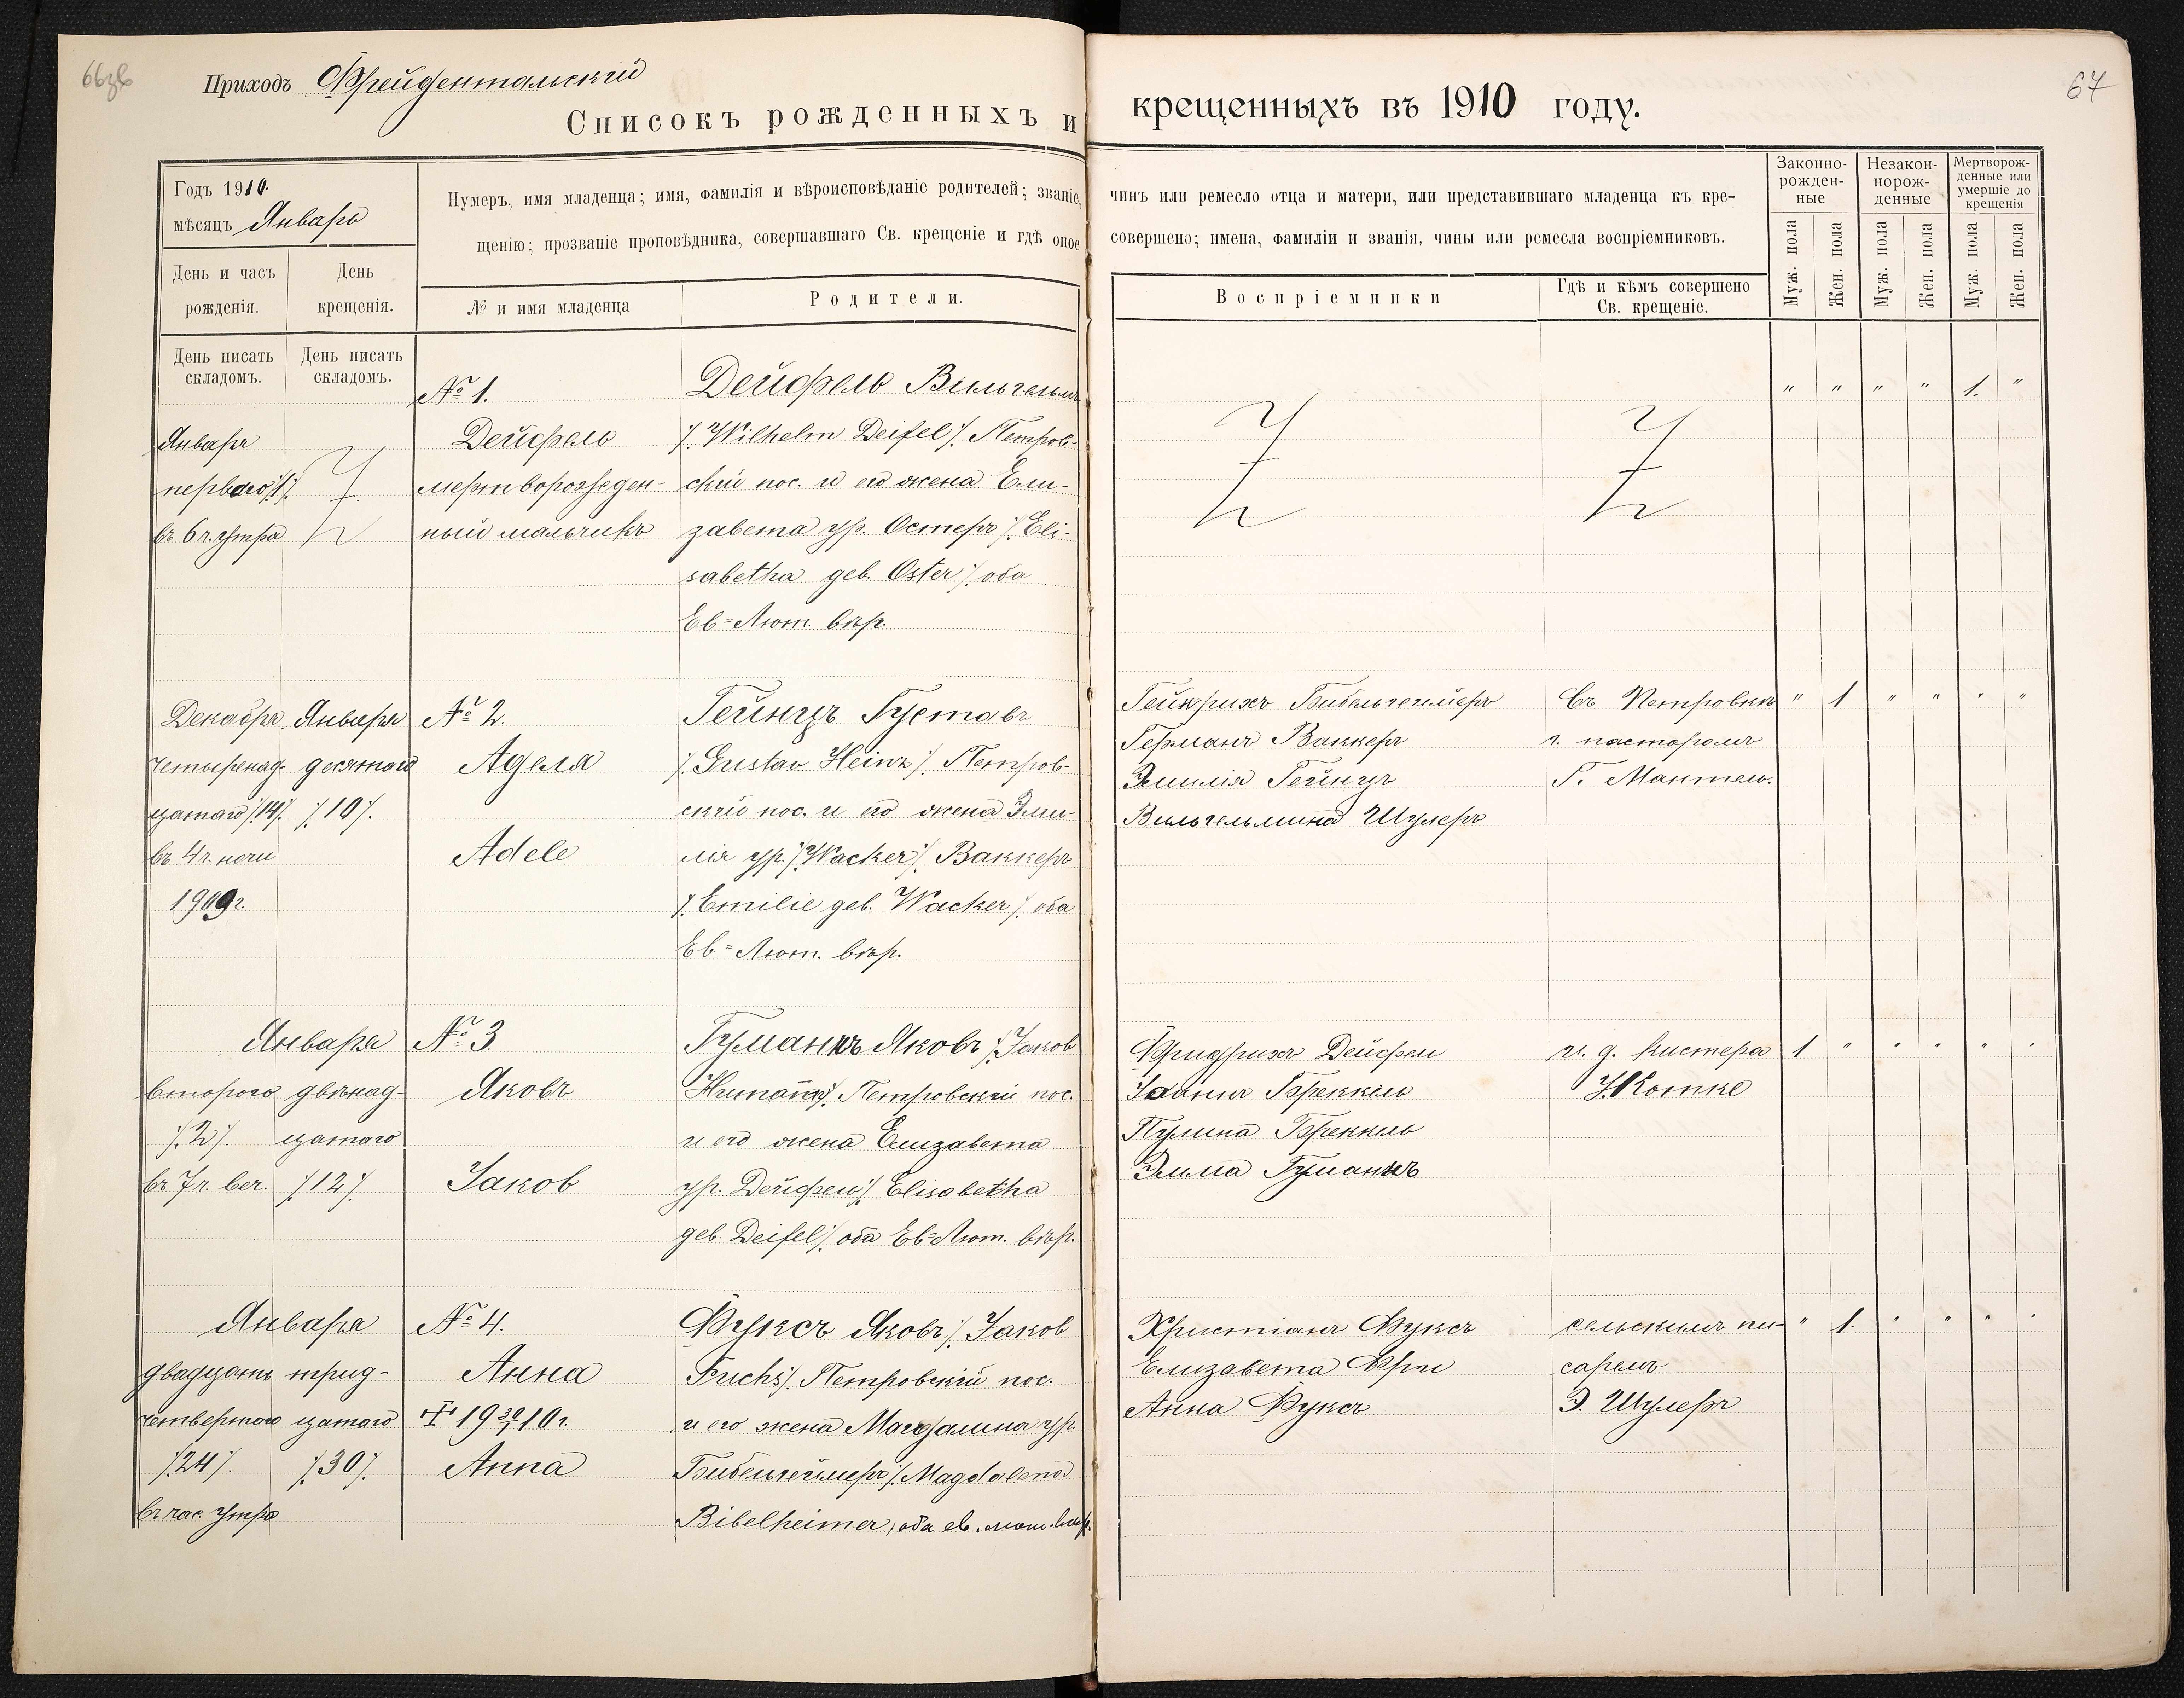 66зв
Приходъ Фрейдентальскій
Списокъ рожденныхъ и крещенныхъ въ 1910 году.
67
Годъ 1910.
мѣсяцъ Январь
День и часъ рожденія.
День крещенія.
Нумеръ, имя младенца; имя, фамилія и вѣроисповѣданіе родителей; званіе, чинъ или ремесло отца и матери, или представившаго младенца къ кре-
щенію; прозваніе проповѣдника, совершавшаго Св. крещеніе и гдѣ оное совершено; имена, фамиліи и званія, чины или ремесла воспріемниковъ.
№ и имя младенца
Родители.
Воспріемники
Гдѣ и кѣмъ совершено
Св. крещеніе.
Законно-
рожден-
ные
Незакон-
норож-
денные
Мертворож-
денные или
умершіе до
крещенія
Муж. пола
Жен. пола
Муж. пола
Жен. пола
Муж. пола
Жен. пола
День писать
складомъ.
День писать
складомъ.
Января
перваго /1/.
въ 6 ч. утра
№ 1.
Дейфель
мертворожден-
ный мальчикъ
Дейфель Вильгельмъ
/. Wilhelm Deifel /. Петров-
скій пос. и его жена Ели-
завета ур. Остеръ /. Eli-
sabetha geb. Oster /. оба
Ев=Лют. вѣр.
" " " " 1. "
Декабря
четыренад-
цатаго /.14/.
въ 4 ч. ночи
1909 г.
Января
десятаго
/.10/.
№ 2.
Аделя
Adele
Гейнцъ Густавъ
/. Gustav Heinz /. Петров-
скій пос. и его жена Эми-
лія ур. /. Wacker /. Ваккеръ
/. Emilie geb. Wacker /. оба
Ев=Лют. вѣр.
Гейнрихъ Бибельгеймеръ
Германъ Ваккеръ
Эмилія Гейнцъ
Вильгельмина Шулеръ
Въ Петровкѣ
г. пасторомъ
Г. Мантель.
" 1 " " " "
Января
второго
/.2/.
въ 7 ч. веч.
двѣнад-
цатаго
/12/.
№ 3
Яковъ
Jakob
Гуманнъ Яковъ /. Jakob
Humann /. Петровскій пос.
и его жена Елизавета
ур. Дейфель /. Elisabetha
geb. Deifel /. оба Ев=Лют. вѣр.
Фридрихъ Дейфель
Іоаннъ Бреккель
Пулина Бреккель
Эмма Гуманнъ
и. д. Кистера
J. Котке
1 " " " " "
Января
двадцать
четвертаго
/.24/.
въ час. утра
трид-
цатаго
/.30/.
№ 4.
Анна
† 19 30/1 10 г.
Anna
Фуксъ Яковъ /. Jakob
Fuchs /. Петровскій пос.
и его жена Магдалина ур.
Бибельгеймеръ /. Magdalena
Bibelheimer, оба ев. лют. вѣр.
Христіанъ Фуксъ
Елизавета Фри
Анна Фуксъ
сельскимъ пи-
саремъ
Э. Шулеръ
" 1 " " " "